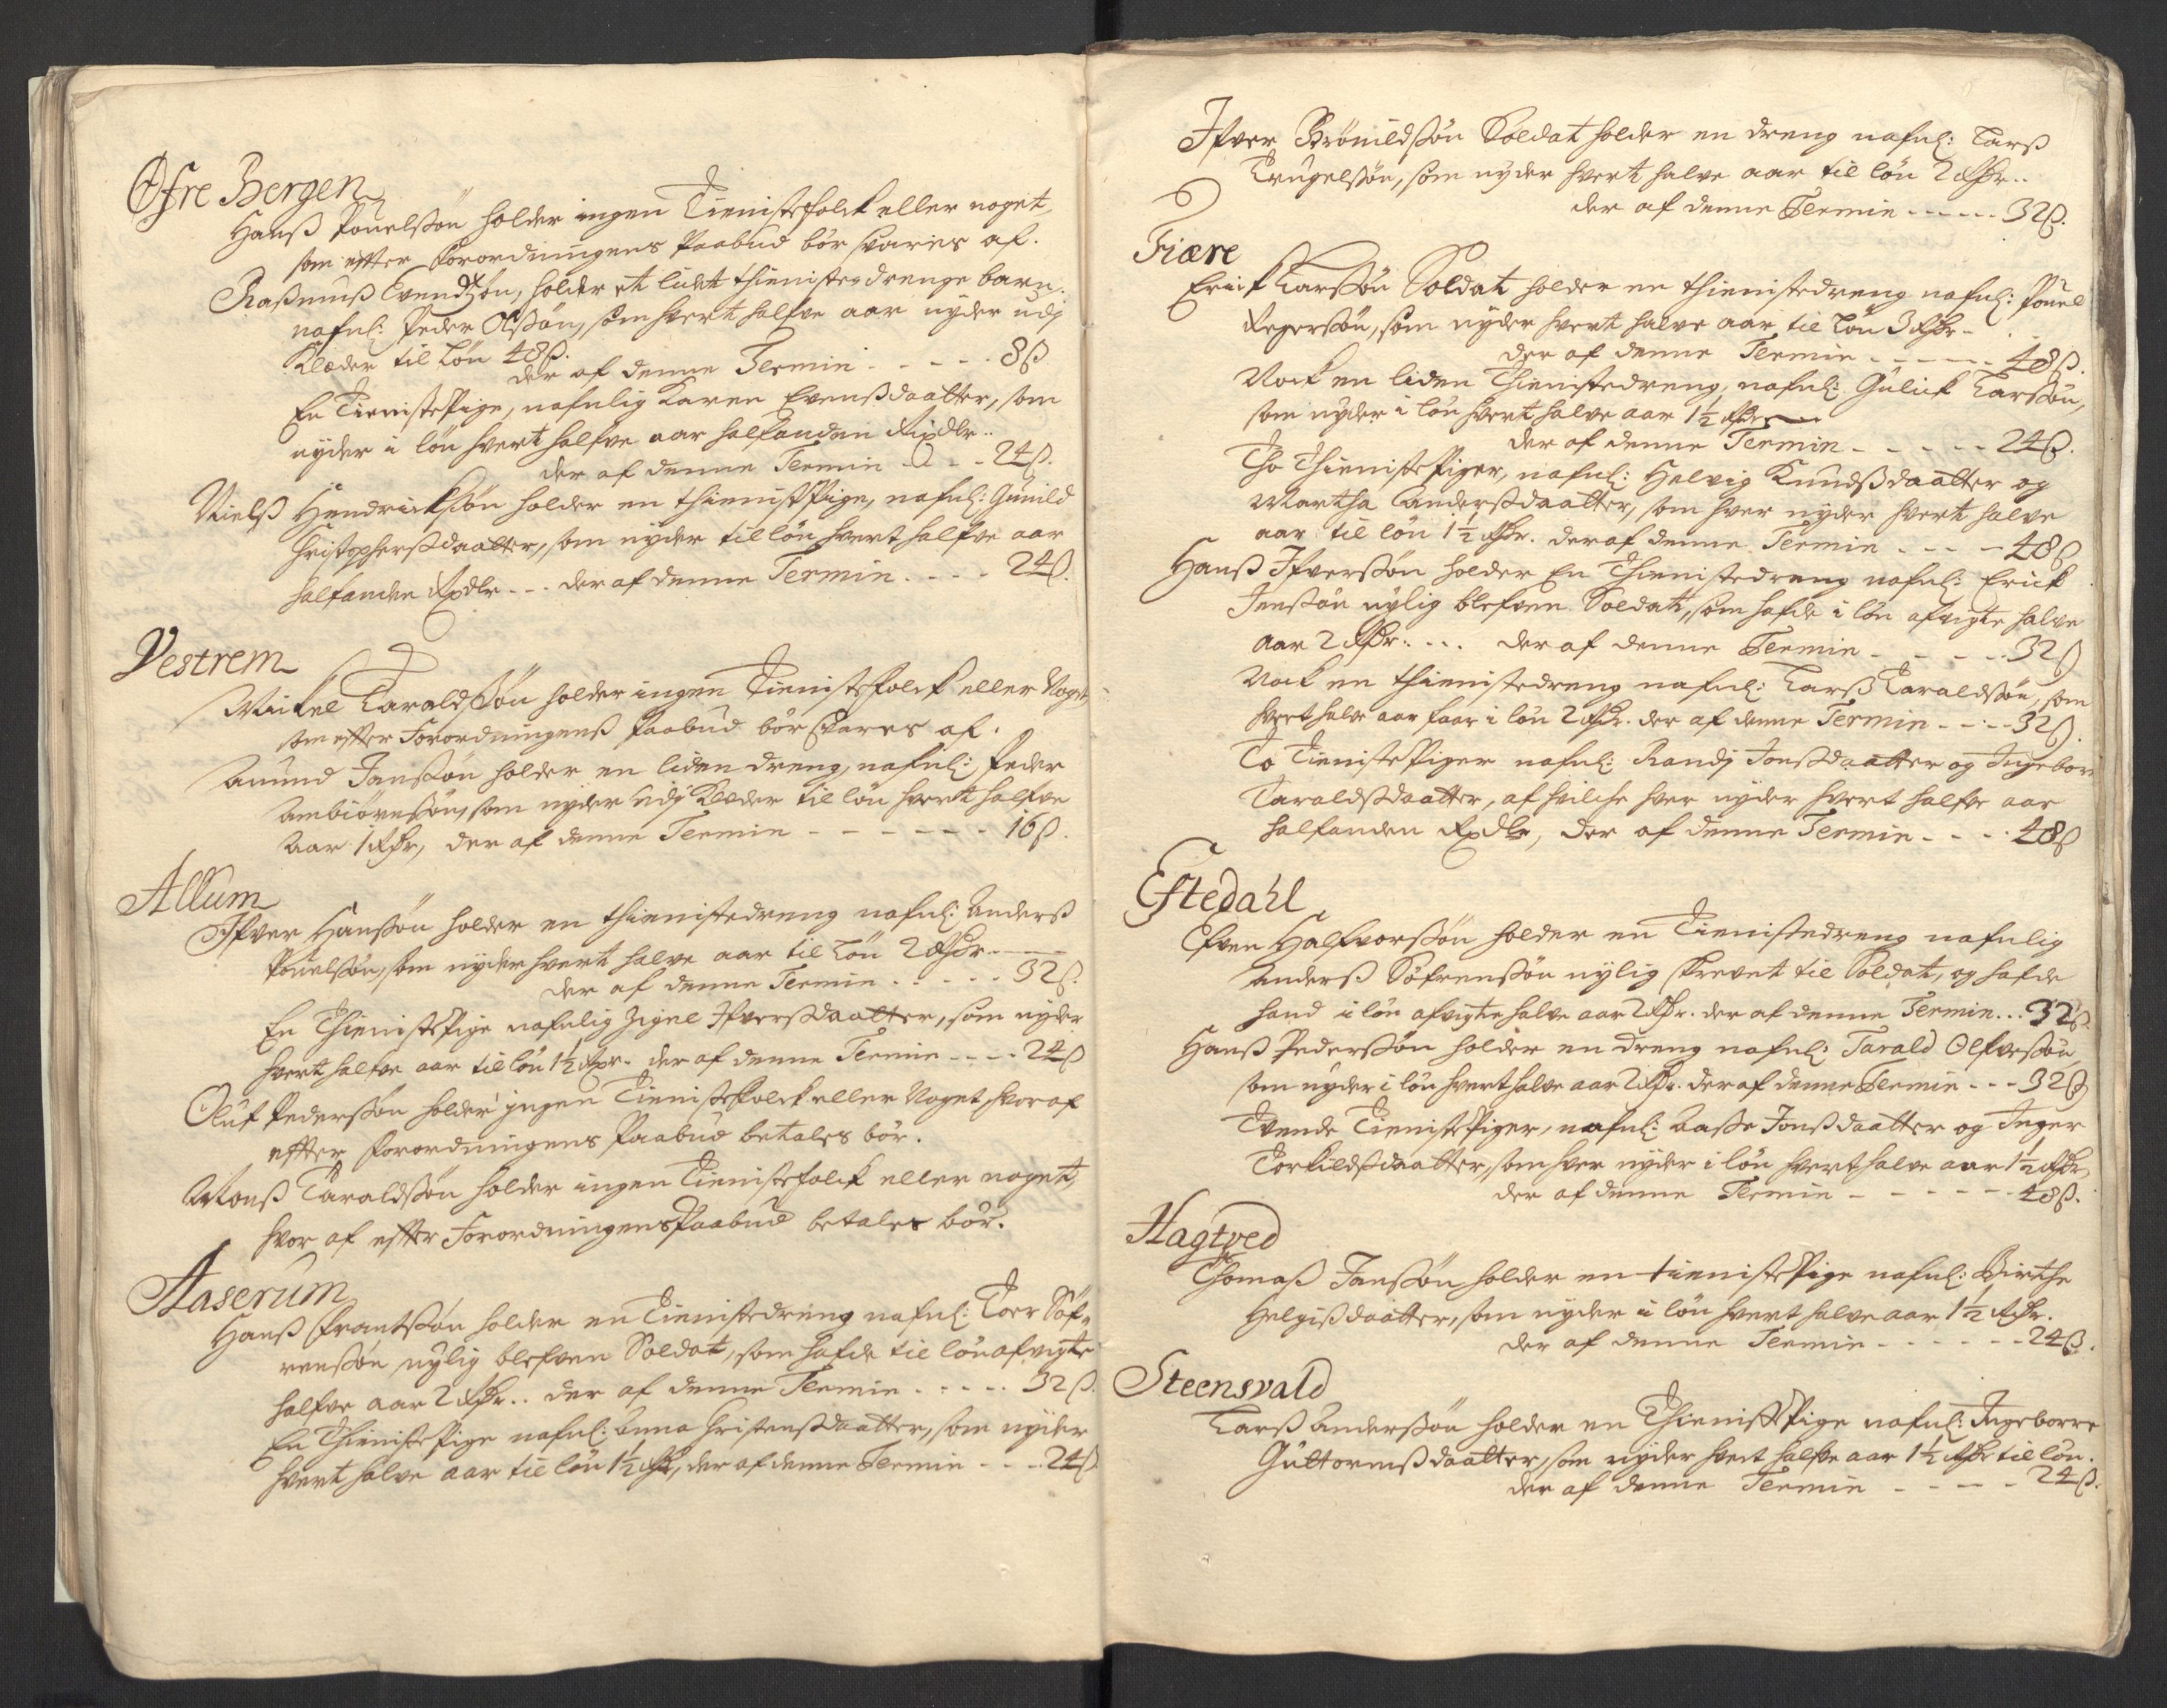 Øfre Bergen
Hanß Pouelßøn holder ingen Tienistefolck eller noget,
som effter Forordningens Paabud bør svaris af.
Raßmuß Evendtzøn, holder et lidet thieniste drenge barn,
nafnl: Peder Olßøn, som hvert halfve aar nyder udj
Klæder til Løn 48ß.
der af denne Termin - - - 8ß
En Tieniste Pige, nafnlig Karen Evenßdaatter, som
nyder i løn hvert halfve aar halfanden Rixdlr..
der af denne Termin - - - 24ß.
Nielß Hendrickßøn holder en thienistPige, nafnl: Gunild
Christopherßdaatter, som nyder til løn hvert halfve aar
halfanden Rxdlr - - - der af denne Termin. - - - 24ß.
Vestrem
Mickel Taraldßøn holder ingen Tienistefolck eller Noget,
som effter Forordningenß Paabud bør svares af.
Amund Janßøn holder en liden dreng, nafnl: Peder
Ambiørnßøn, som nyder udj Klæder til løn hvert halfve
Aar 1 Rdr, der af denne Termin - - - - - - 16ß.
Allum
Ifver Hanßøn holder en thienistedreng nafnl: Anderß
Pouelßøn, som nyder hvert halve aar til Løn 2 Rdr. -
der af denne Termin. - - - - 32ß.
En ThienistePige nafnlig Zignel Ifverßdaatter, som nyder
hvert halfve aar til løn 1½ Rdr. der af denne Termin - - - - 24ß
Oluf Pederßøn holder jngen Tienistefolck eller Noget, hvoraf
effter Forordningens Paabud betales bør.
Monß Taraldßøn holder ingen Tienistefolck eller noget,
hvor af effter Forordningens Paabud betales bør.
Aaserum
Hanß Frantßøn holder en Tienistedreng nafnl: Toer Søf„
renßøn nylig blefven Soldat, som hafde til løn afvigte
halfve aar 2 Rdr.. der af denne Termin. - - - - 32ß.
En ThienistePige nafnl: Anna Christensdaatter, som nyder
hvert halve aar til løn 1½ Rdr, der af denne Termin - - - 24ß.
Ifver Brønildßøn Soldat holder en dreng nafnl: Larß
Trugelßøn, som nyder hvert halve aar til løn 2 Rdr..
der af denne Termin - - - - - 32ß.
Fiære
Erick Larßøn Soldat holder en thienistedreng nafnl: Pouel
Regerßøn, som nyder hvert halve aar til Løn 3 Rdr -
der af denne Termin - - - - - 48ß.
Nock en liden Thienistedreng, nafnl: Gulick Larßøn,
som nyder i løn hvert halve aar 1½ Rdr
der af denne Termin - - - - - 24ß.
Tho ThienistePiger, nafnl: Helvig Knudßdaatter og
Martha Anderßdaatter, som hver nyder hvert halve
aar til løn 1½ Rdr. der af denne Termin - - - - 48ß
Hanß Ifverßøn holder En Thienistedreng nafnl: Erick
Jenßøn nylig blefven Soldat, som hafde i løn afvigte halve
aar 2 Rdr. . . . der af denne Termin - - - - 32ß
Nock en thienistedreng nafnl: Larß Taraldßøn, som
hvert halve aar faar i løn 2 Rdr. der af denne Termin - - - - 32ß.
To TienistePiger nafnl: Randj Jonßdaatter og Ingebor
Taraldßdaatter, af hvilche hver nyder hvert halfve aar
halfanden Rxdlr, der af denne Termin - - - - 48ß
Eftedahl
Efven Halfvorßøn holder en Tienistedreng nafnlig
Anderß Søfrenßøn nylig skrevet til Soldat, og hafde
hand i løn afvigte halve aar 2 Rdr. der af denne Termin... 32ß.
Hanß Pederßøn holder en dreng nafnl: Tarald Olfveßøn,
som nyder i løn hvert halve aar 2 Rdr. der af denne Termin - - - 32ß
Tvende TienistePiger, nafnl: Aaße Jonßdaatter og Inger
Torkildßdaatter, som hver nyder i løn hvert halve aar 1½ Rdr,
der af denne Termin - - - - - - 48ß.
Hagtved
Thomaß Janßøn holder en tienistePige nafnl: Birthe
Helgißdaatter, som nyder i løn hvert halve aar 1½ Rdr.
der af denne Termin - - - - - - 24ß.
Steensvald
Larß Anderßøn holder en ThienistPige nafnl: Ingeborre
Guttormßdaatter, som nyder hvert halfve aar 1½ Rdr til løn.
der af denne Termin - - - - 24ß.